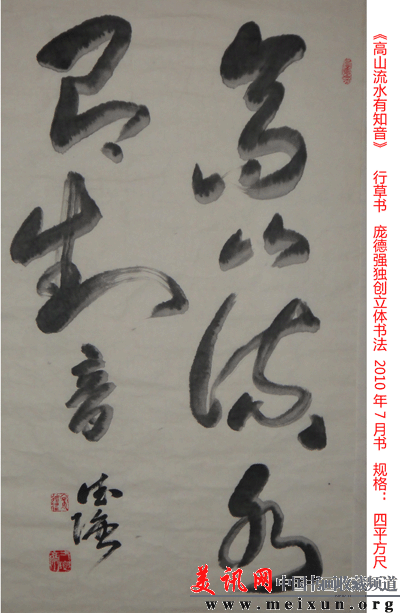 《高山流水有知音》 行草书 庞德强独创立体书法 2010年7月书 规格: 四平方尺
高山流水
有知音
德强
美讯网 中国书画收藏频道
www.meixun.org